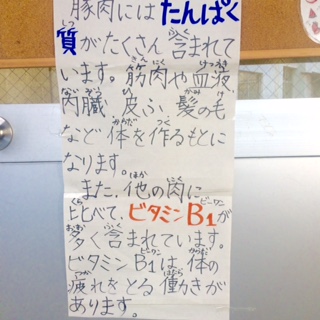 豚肉にはたんぱく
質がたくさん含まれて
います。筋肉や血液、
内臓、皮ふ、髪の毛
など体を作るもとに
なります。
また、他の肉に
比べて、ビタミンB1が
多く含まれています。
ビタミンB1は体の
疲れをとる働きが
あります。